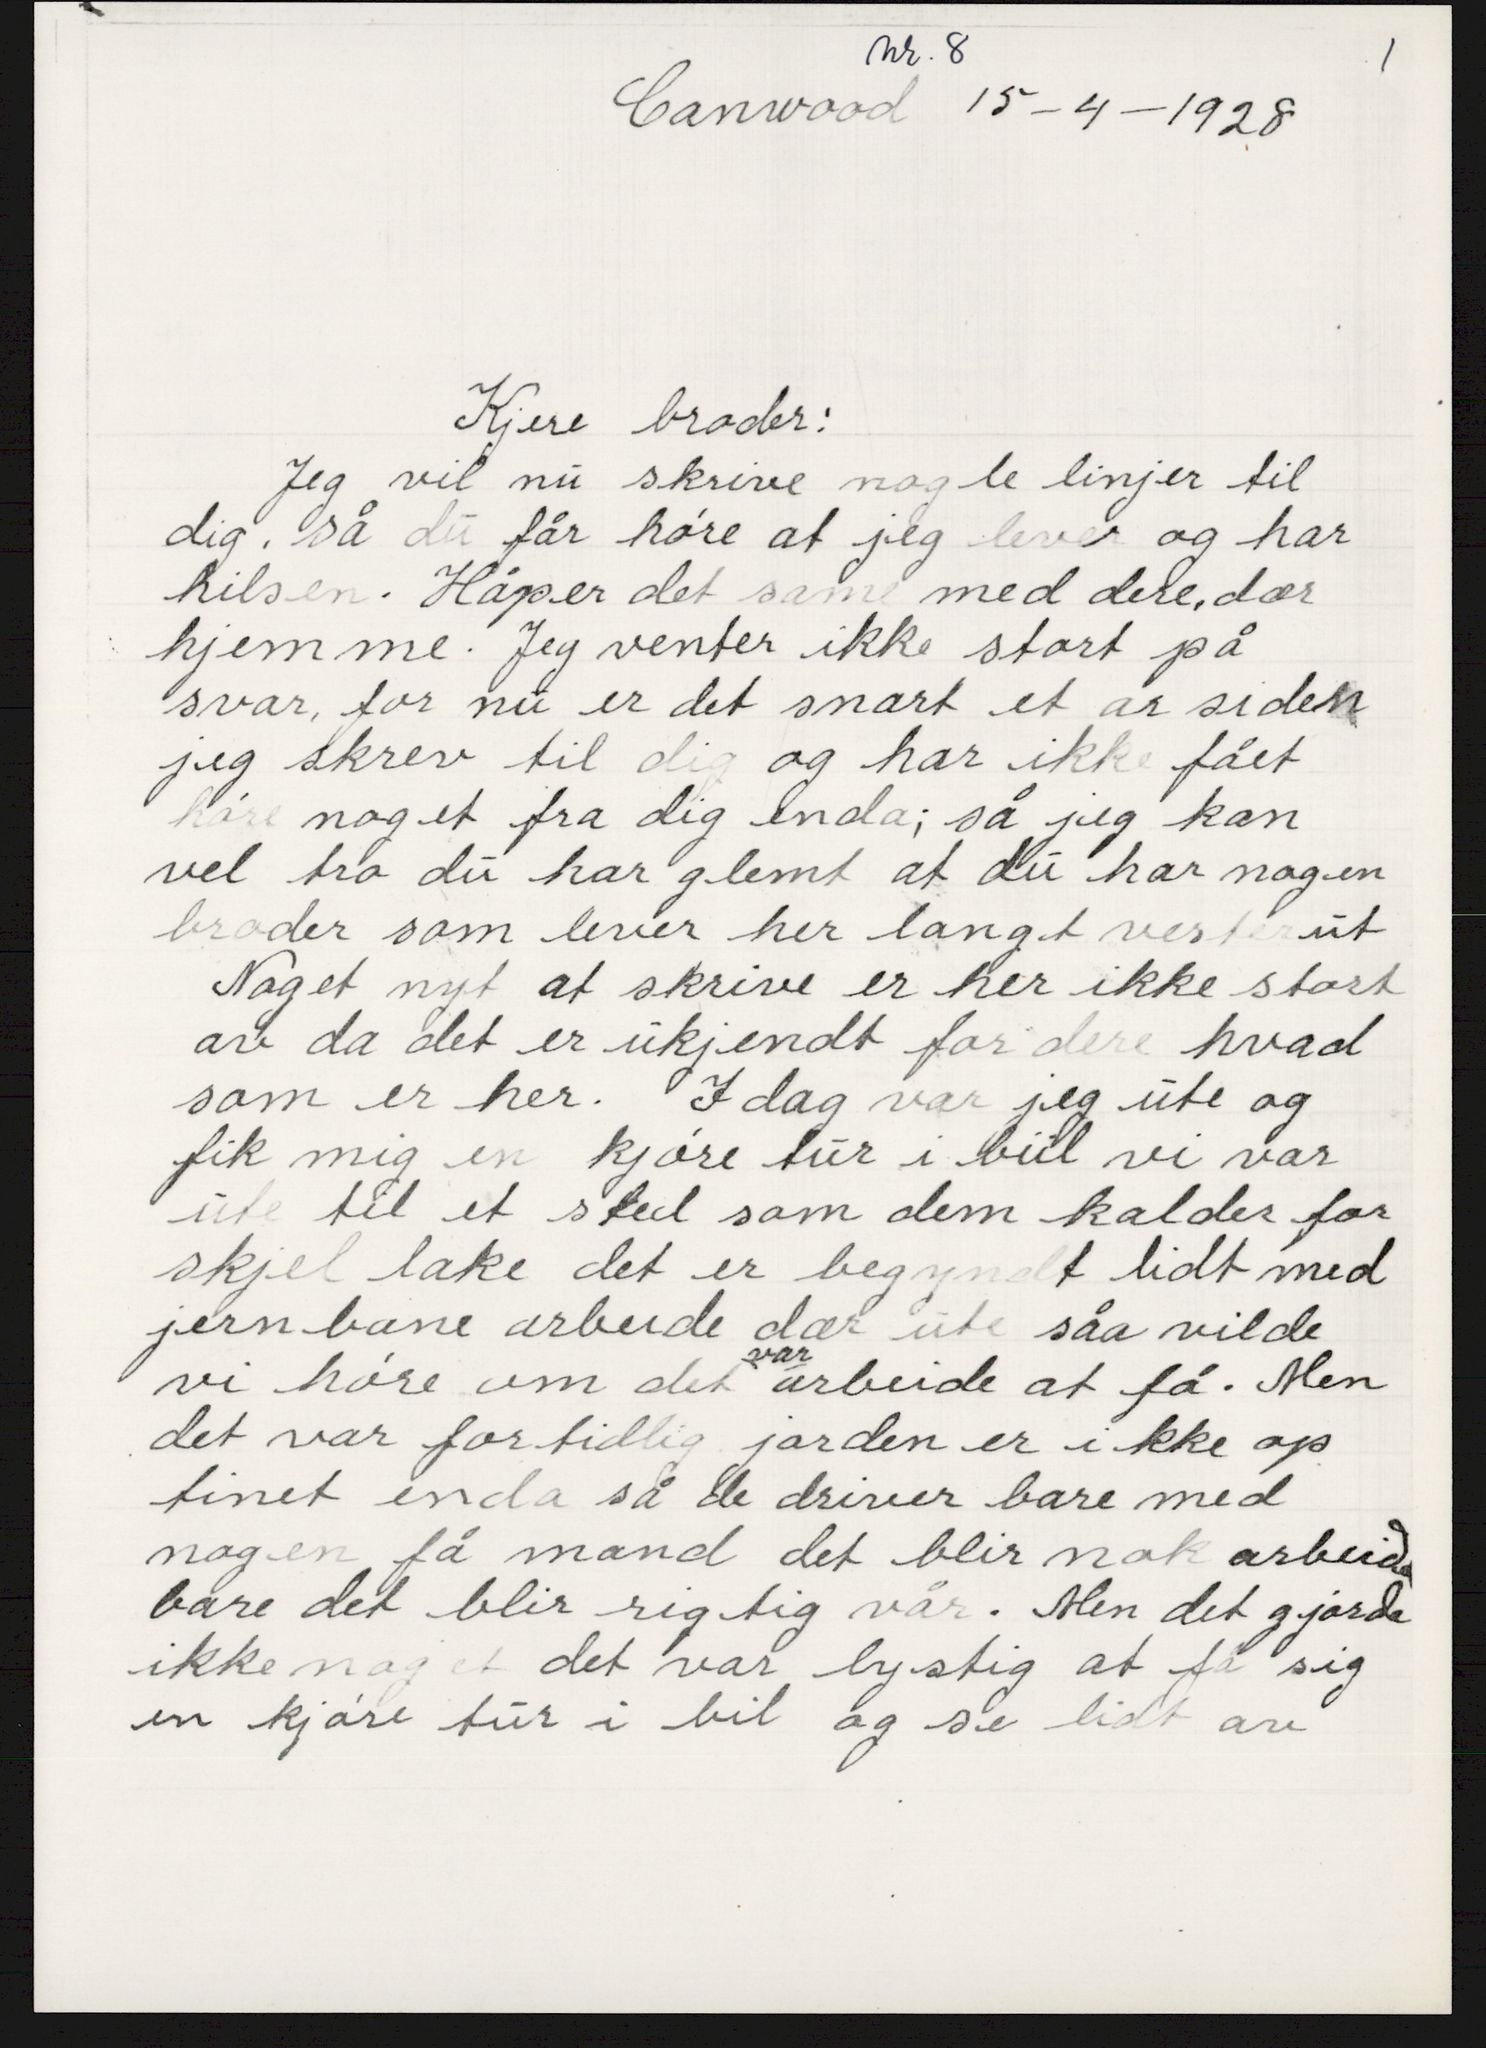 nr. 8
1
Canwood 15-4-1928
Kjere broder:
Jeg vil nu skrive nogle linjer til
dig. så du får hóre at jeg lever og har
hilsen. Håper det same med dere, dær
hjemme. Jeg venter ikke stort på
svar, for nu er det snart et ar siden
jeg skrev til dig og har ikke fået
hóre noget fra dig enda; så jeg kan
vel tro du har glemt at du har nogen
broder som lever her langt vesterut
Noget nyt at skrive er her ikke stort
av da det er ukjendt for dere hvad
som er her. I dag var jeg ute og
fik mig en kjóre tur i biil vi var
ute til et sted som dem kalder for
skjel lake det er begyndt lidt med
jernbane arbeide dær ute såa vilde
vi hóre om det var arbeide at få. Men
det var fortidlig jorden er ikke op
tinet enda så de driver bare med
nogen få mand det blir nok arbeide
bare det blir rigtig vår. Men det gjorde
ikke noget det var lystig at få sig
en kjóre tur i bil og se lidt av